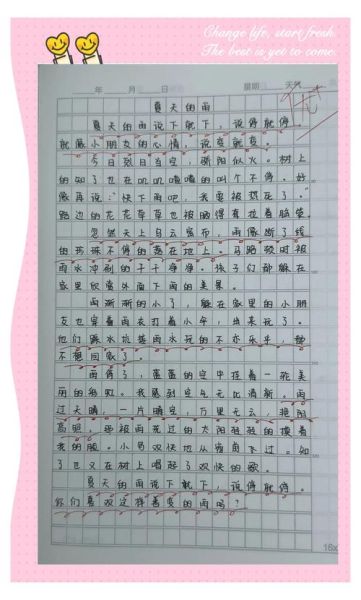 Change life, start fresh.
The best is yet to come.
年 月 日 星期 天气
优
夏天的雨
夏天的雨说下就下，说停就停，
就像小朋友的心情，说变就变。
今日烈日当空，骄阳似火。树上
的知了也在叽叽喳喳的叫个不停，好
像再说：“快下雨吧，我要被烫死了。”
路边的花花草草也被晒得耷拉着脑袋。
忽然天上乌云密布，雨像断了线
的珍珠不停的落在地上。马路顿时被
雨水冲刷的干干净净。孩子们都躲在
家里欣赏外面下雨的美景。
雨渐渐的小了，躲在家里的小朋
友也穿着雨衣打着小伞，出来玩了。
他们踩水坑踢雨水玩的不亦乐乎，都
不想回家了。
雨停了，蓝蓝的空中挂着一轮美
丽的彩虹。我感到空气无比清新。雨
过天晴，一片晴空，万里无云，艳阳
高照。
我的脸。小鸟欢快地从
了也又在树上唱起了欢快的歌。
夏天的雨说下就下，说停就停。
你们喜欢这样善变的雨吗？